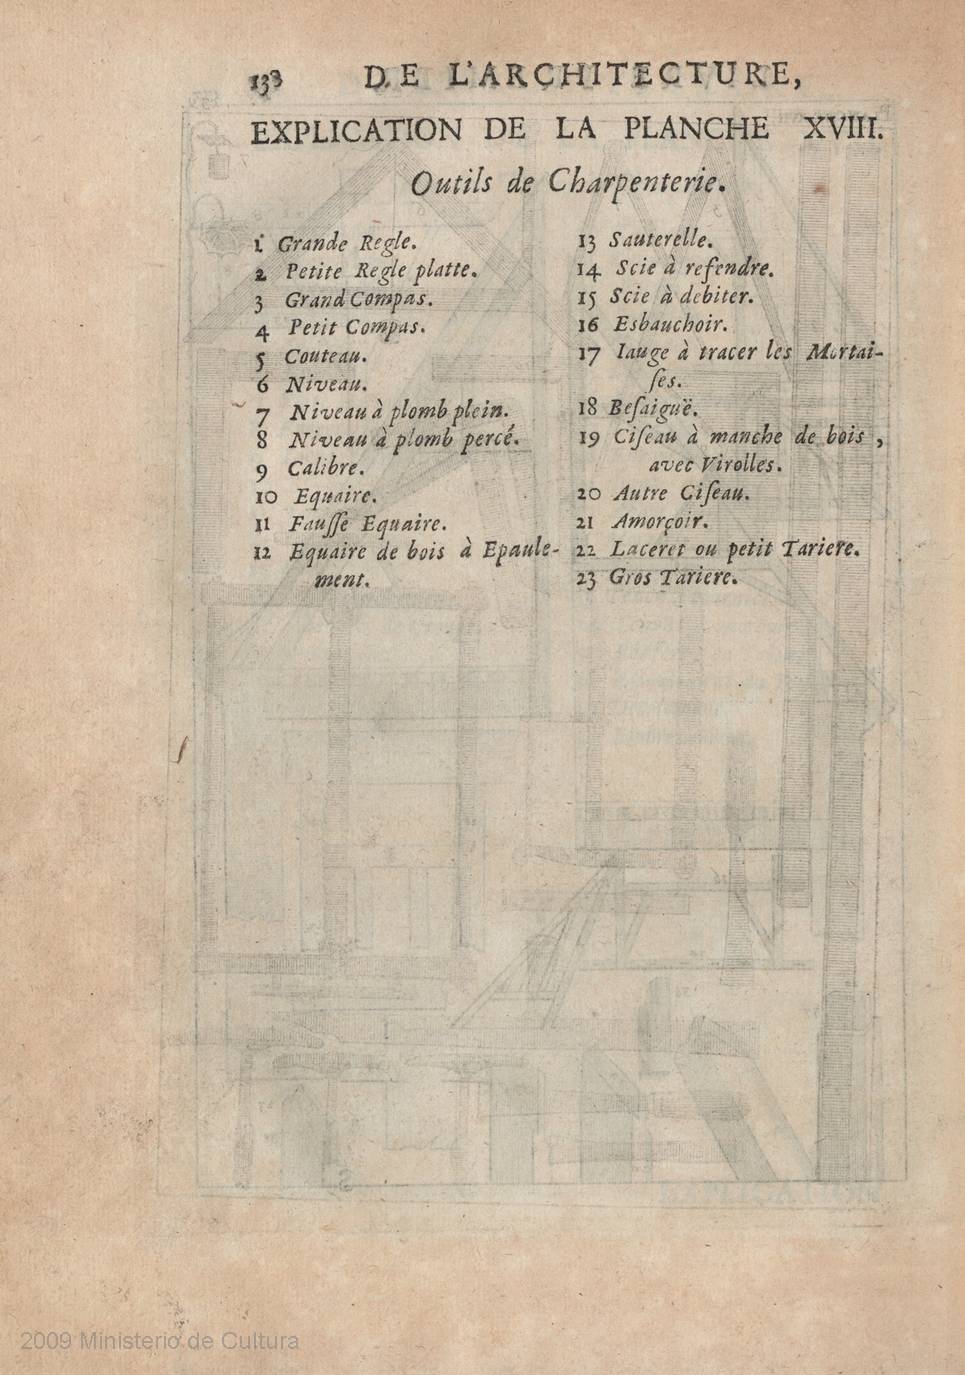 138 DE L'ARCHITECTURE,
EXPLICATION DE LA PLANCHE XVIII.
Outils de Charpenterie.
1 Grande Regle.
2 Petite Regle platte.
3 Grand Compas.
4 Petit Compas.
5 Couteau.
6 Niveau.
7 Niveau à plomb plein.
8 Niveau à plomb percé.
9 Calibre.
10 Equaire.
11 Fausse Equaire.
12 Equaire de bois à Epaule-
ment.
13 Sauterelle.
14 Scie à refendre.
15 Scie à debiter.
16 Esbauchoir.
17 Iauge à tracer les Mortai-
ſes.
18 Beſaiguë.
19 Ciſeau à manche de bois,
avec Virolles.
20 Autre Ciſeau.
21 Amorçoir.
22 Laceret ou petit Tariere.
23 Gros Tariere.
2009 Ministerio de Cultura